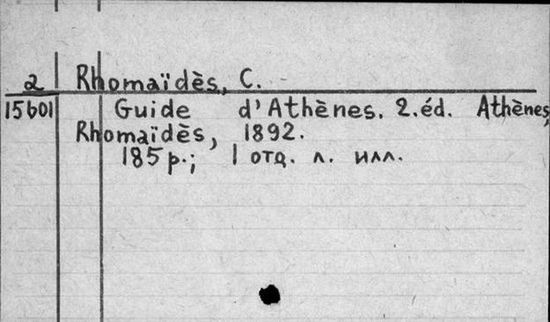 2 Rhomaïdès, C.
15601 Guide d'Athènes. 2.éd. Athènes,
Rhomaïdès, 1892.
185 p.; 1 отд. л. илл.